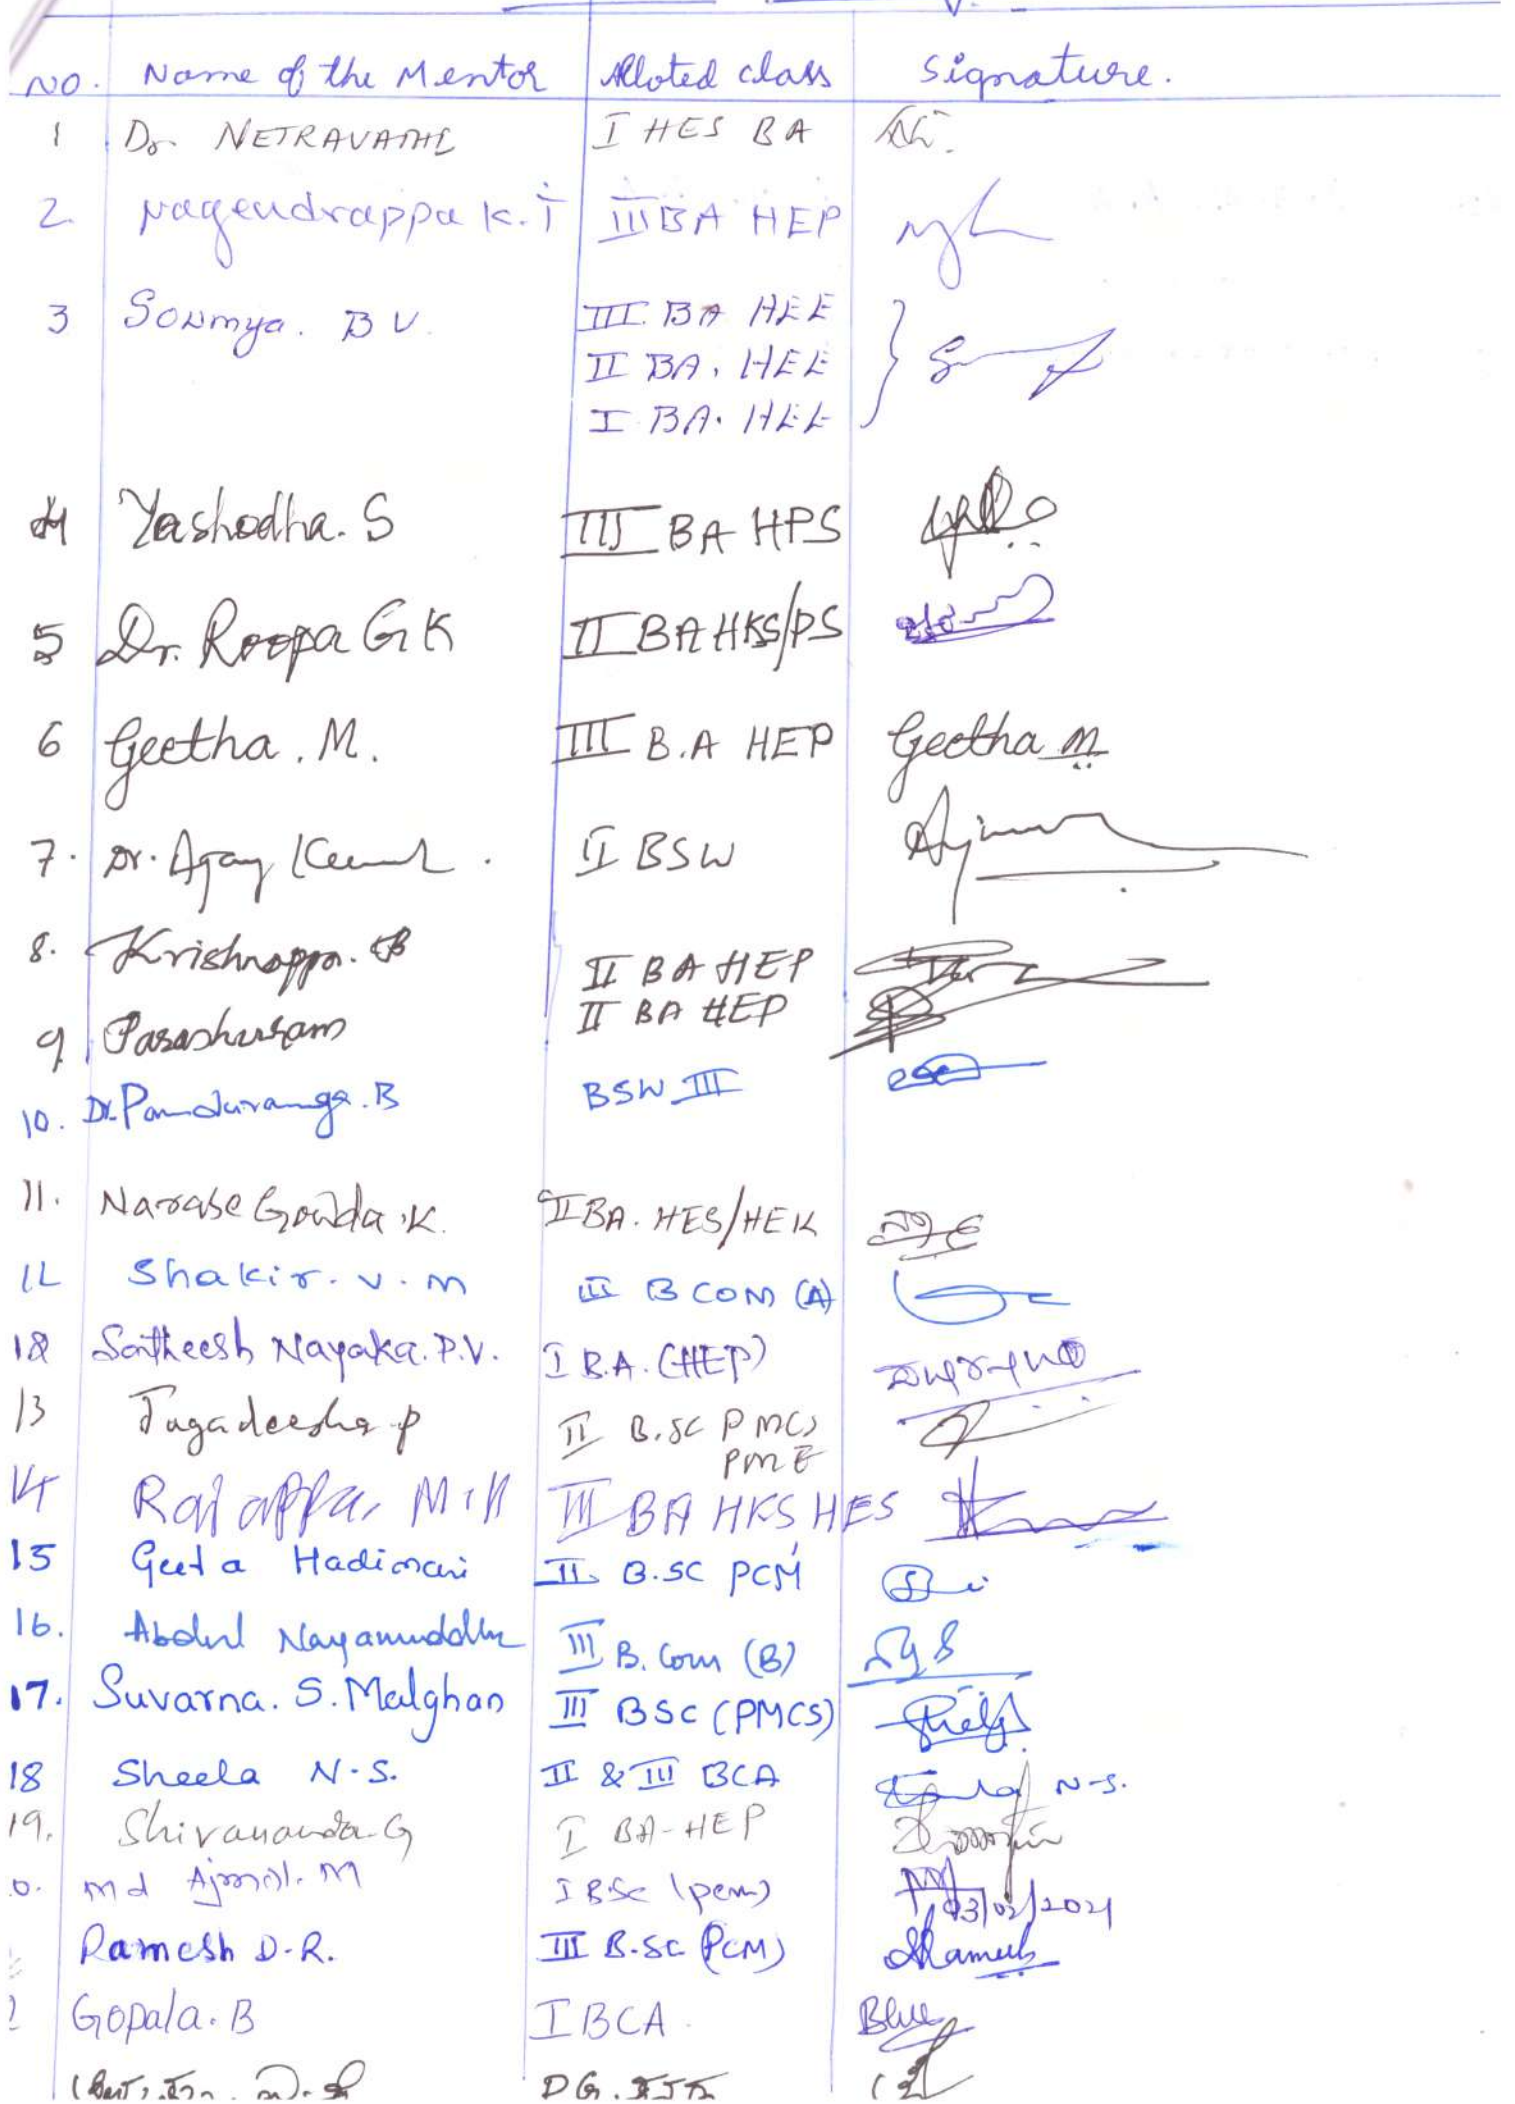 NO. Name of the Mentor Alloted class Signature.
1 Dr. NETRAVATHI I HES BA
2 Nagendrappa K.T III BA HEP
3 Sowmya. B V. III. BA HEE
II BA. HEE
I BA. HEE
4 Yashodha. S III BA HPS
5 Dr. Roopa G K II BA HKS/PS
6 Geetha. M. III B.A HEP Geetha M
7. Dr. Ajay Kumar. II BSW
8. Krishnappa. B II BA HEP
9 Parashuram II BA HEP
10. Dr. Panduranga. B BSW III
11. Narase Gowda .K. II BA. HES/HEK
12 Shakir. V. M III B COM (A)
12 Santheesh Nayaka. P.V. I B.A. (HEP)
13 Jagadeesha P II B.SC PMCS
PME
14 Rajappa, M.H III BA HKS, HES
15 Geeta Hadimani II B.SC PCM
16. Abdul Nayamuddin III B. Com (B)
17. Suvarna. S. Malghan III BSC (PMCS)
18 Sheela N.S. II & III BCA N-S.
19. Shivananda. G I BA-HEP
0. Md Ajmal. M I BSc (pcm) 03/02/2021
Ramesh D.R. III B.SC (PCM) Ramesh
2 Gopala. B I BCA.
DG.